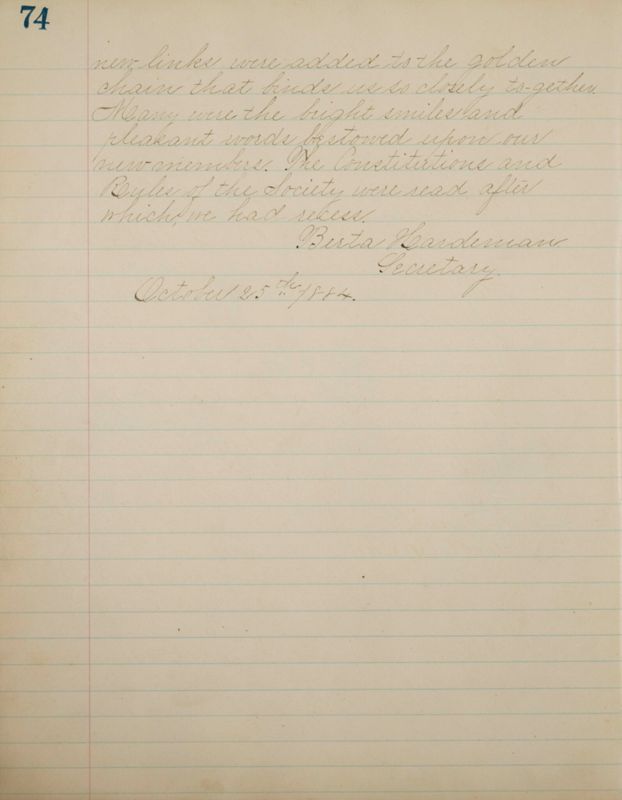 74
new links were added to the golden
chain that binds us so closely to-gether.
Many were the bright smiles and
pleasant words bestowed upon our
new members. The Constitutions and
Rules of the Society were read after
which, we had recess.
Berta Hardeman
Secretary.
October 25th 1884.